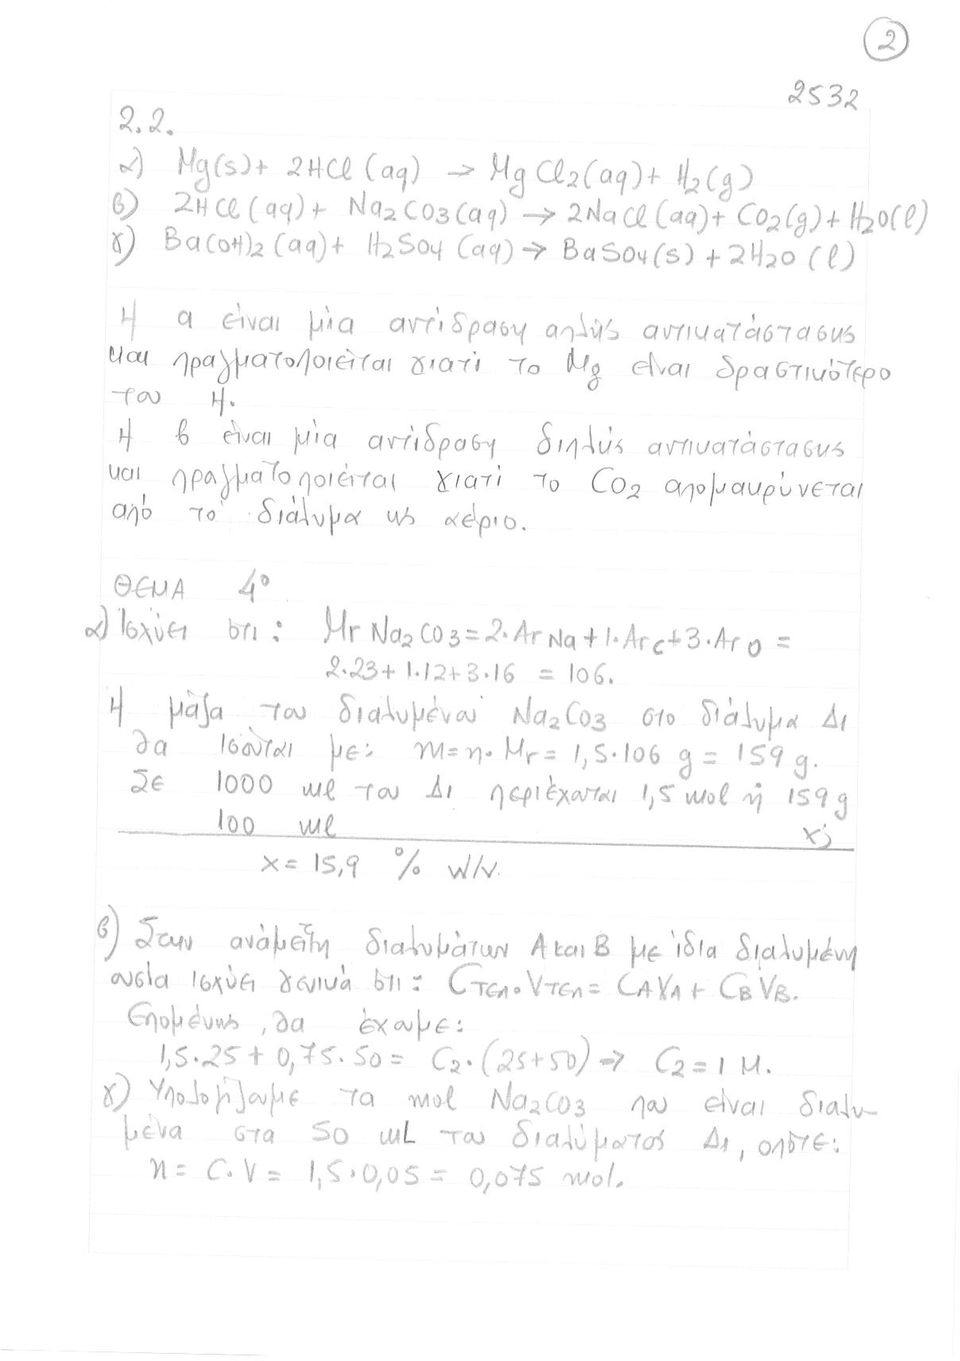 2
2532
2.2.
α) Mg(s) + 2HCl (aq) → MgCl2(aq) + H2(g)
β) 2HCl(aq) + Na2CO3(aq) → 2NaCl(aq) + CO2(g) + H2O(l)
γ) Ba(OH)2(aq) + H2SO4 (aq) → BaSO4(s) + 2H2O (l)
Η α είναι μία αντίδραση απλής αντικατάστασης
και πραγματοποιείται γιατί το Mg είναι δραστικότερο
του H.
Η β είναι μία αντίδραση διπλής αντικατάστασης
και πραγματοποιείται γιατί το CO2 απομακρύνεται
από το διάλυμα ως αέριο.
ΘΕΜΑ 4ο
α) Ισχύει ότι: Mr Na2CO3 = 2·Ar Na + 1·Ar C + 3·Ar O =
2·23 + 1·12 + 3·16 = 106.
Η μάζα του διαλυμένου Na2CO3 στο διάλυμα Δ1
θα ισούται με: m = n·Mr = 1,5·106 g = 159 g.
Σε 1000 ml του Δ1 περιέχονται 1,5 mol ή 159 g
100 ml x;
x = 15,9 % w/v.
β) Στην ανάμειξη διαλυμάτων Α και Β με ίδια διαλυμένη
ουσία ισχύει γενικά ότι: CΤΕΛ·VΤΕΛ = CAVA + CBVB.
Επομένως, θα έχουμε:
1,5·25 + 0,75·50 = C2·(25+50) → C2 = 1 M.
γ) Υπολογίζουμε τα mol Na2CO3 που είναι διαλυ-
μένα στα 50 mL του διαλύματος Δ1, οπότε:
n = C·V = 1,5·0,05 = 0,075 mol.